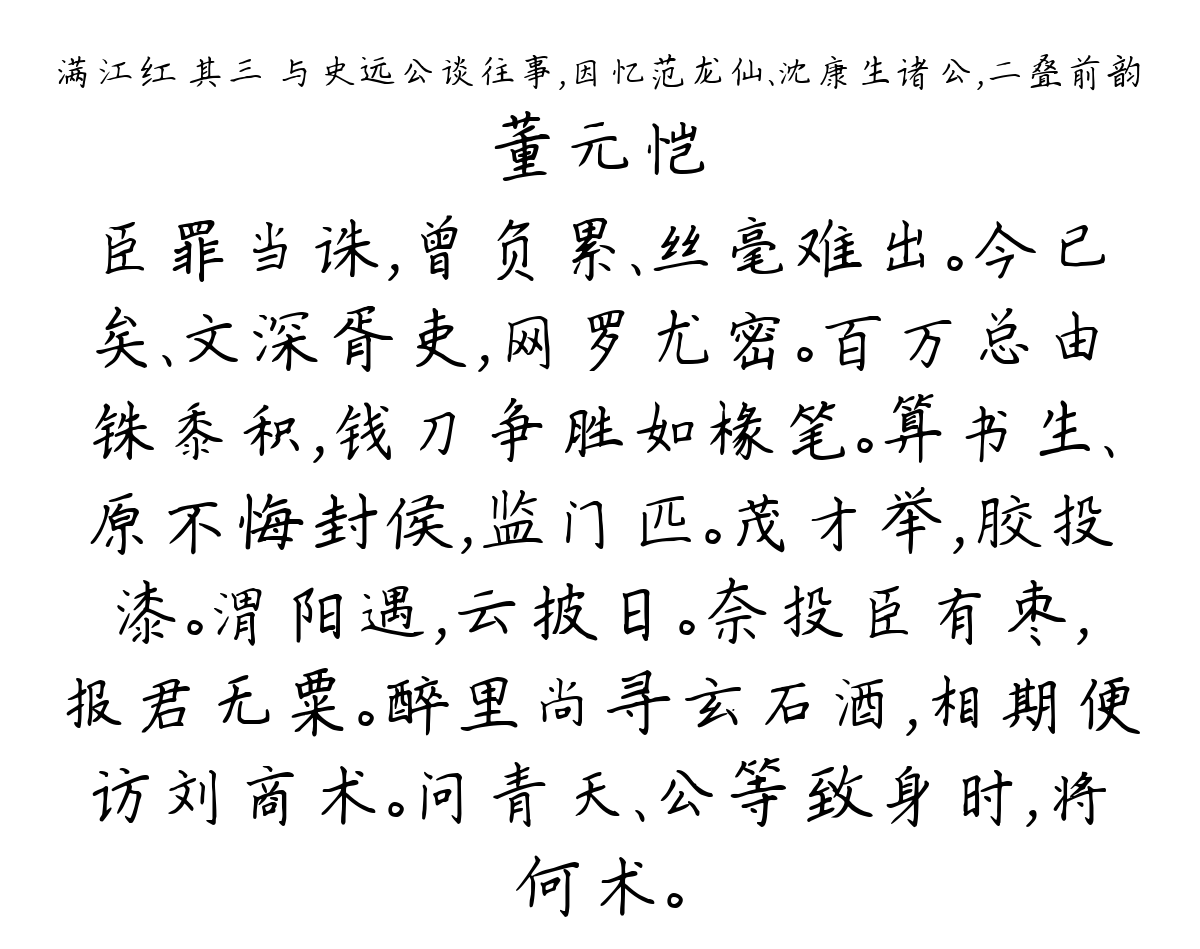 满江红 其三 与史远公谈往事,因忆范龙仙、沈康生诸公,二叠前韵
董元恺
臣罪当诛,曾负累、丝毫难出。今已
矣、文深胥吏,网罗尤密。百万总由
铢黍积,钱刀争胜如椽笔。算书生、
原不悔封侯,监门匹。茂才举,胶投
漆。渭阳遇,云披日。奈投臣有枣,
报君无粟。醉里尚寻玄石酒,相期便
访刘商术。问青天、公等致身时,将
何术。